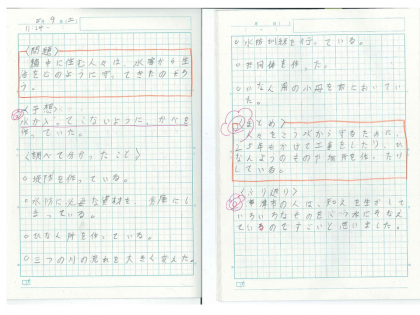 〈問題〉
輪中に住む人々は、水害から生
活をどのように守ってきたのだろ
う。
〈予想〉
水が入ってこないように、かべを
作っていた。
〈調べて分かったこと〉
○堤防を作っている。
○水防に必要な資材を、倉庫にし
まっている。
○ひなん所を作っている。
○三つの川の流れを大きく変えた。
○水防訓練を行っている。
○共同体を作った。
○ひなん用の小舟を家においてい
た。
〈まとめ〉
人々をこう水から守るために、
25年もかけて工事をしたり、ひ
なんようのものや場所を作ったり
している。
〈ふり返り〉
の人は、知えを生かして
いろいろなやり をこう水にそなえ
ているのですごいと思いました。